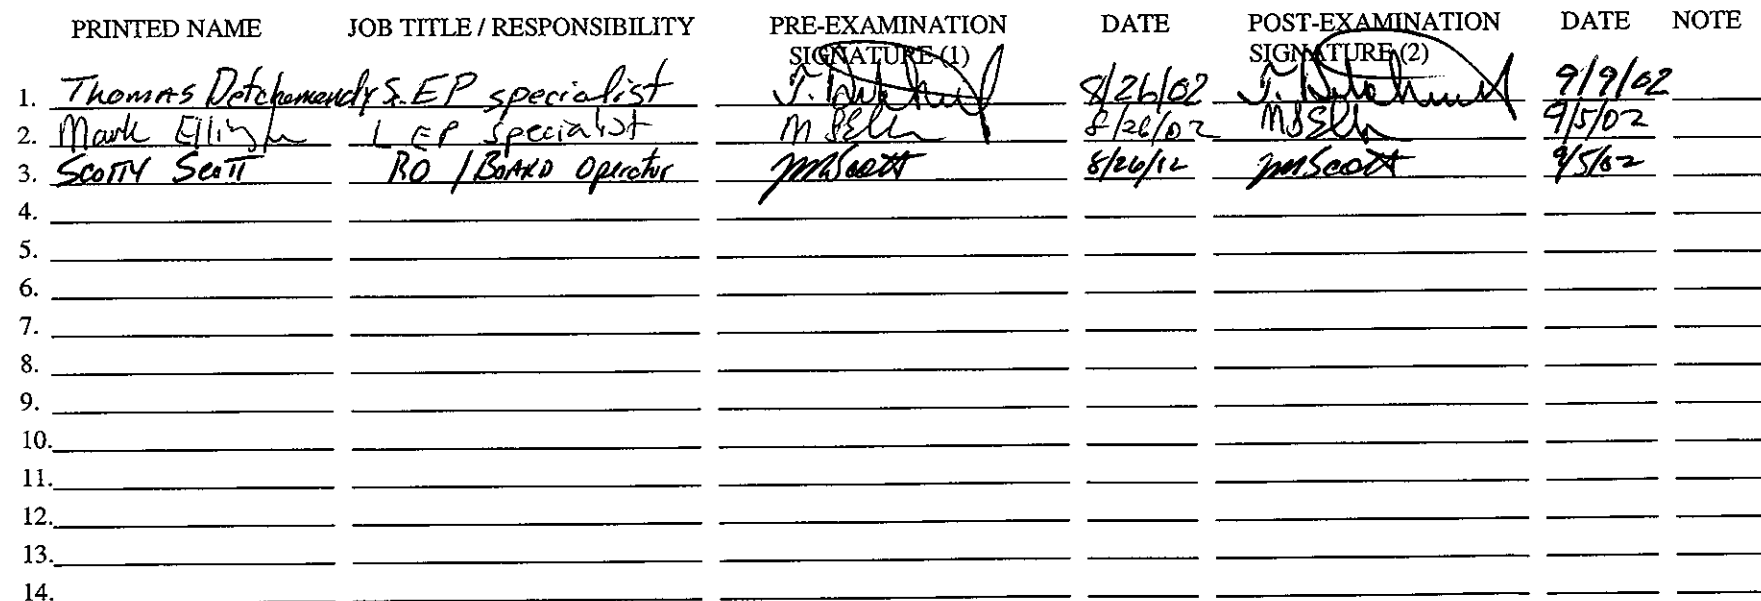 PRINTED NAME JOB TITLE / RESPONSIBILITY PRE-EXAMINATION SIGNATURE (1) DATE POST-EXAMINATION SIGNATURE (2) DATE NOTE
1. Thomas Detchemendy S. EP specialist 8/26/02 9/9/02
2. Mark EP Specialist 8/26/02 9/5/02
3. Scotty Scott RO / BOARD Operator JMScott 8/26/12 JMScott 9/5/02
4.
5.
6.
7.
8.
9.
10.
11.
12.
13.
14.